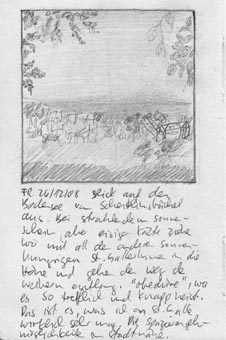 FR 26/12/08 Blick auf den
Bodensee vom Scheitlinsbüchel
aus. Bei strahlendem Sonnen-
schein, aber eisiger Kälte ziehe
wir mit all den anderen Sonnen-
hungrigen St. Gallerinnen in die
Höhe und gehen den Weg de
Weihern entlang. "obedure", wie
es so trefflich und knapp heisst.
Das ist es, was ich an St. Galle
wirklich sehr mag. Die Spazier
möglichkeiten in Stadtnähe.